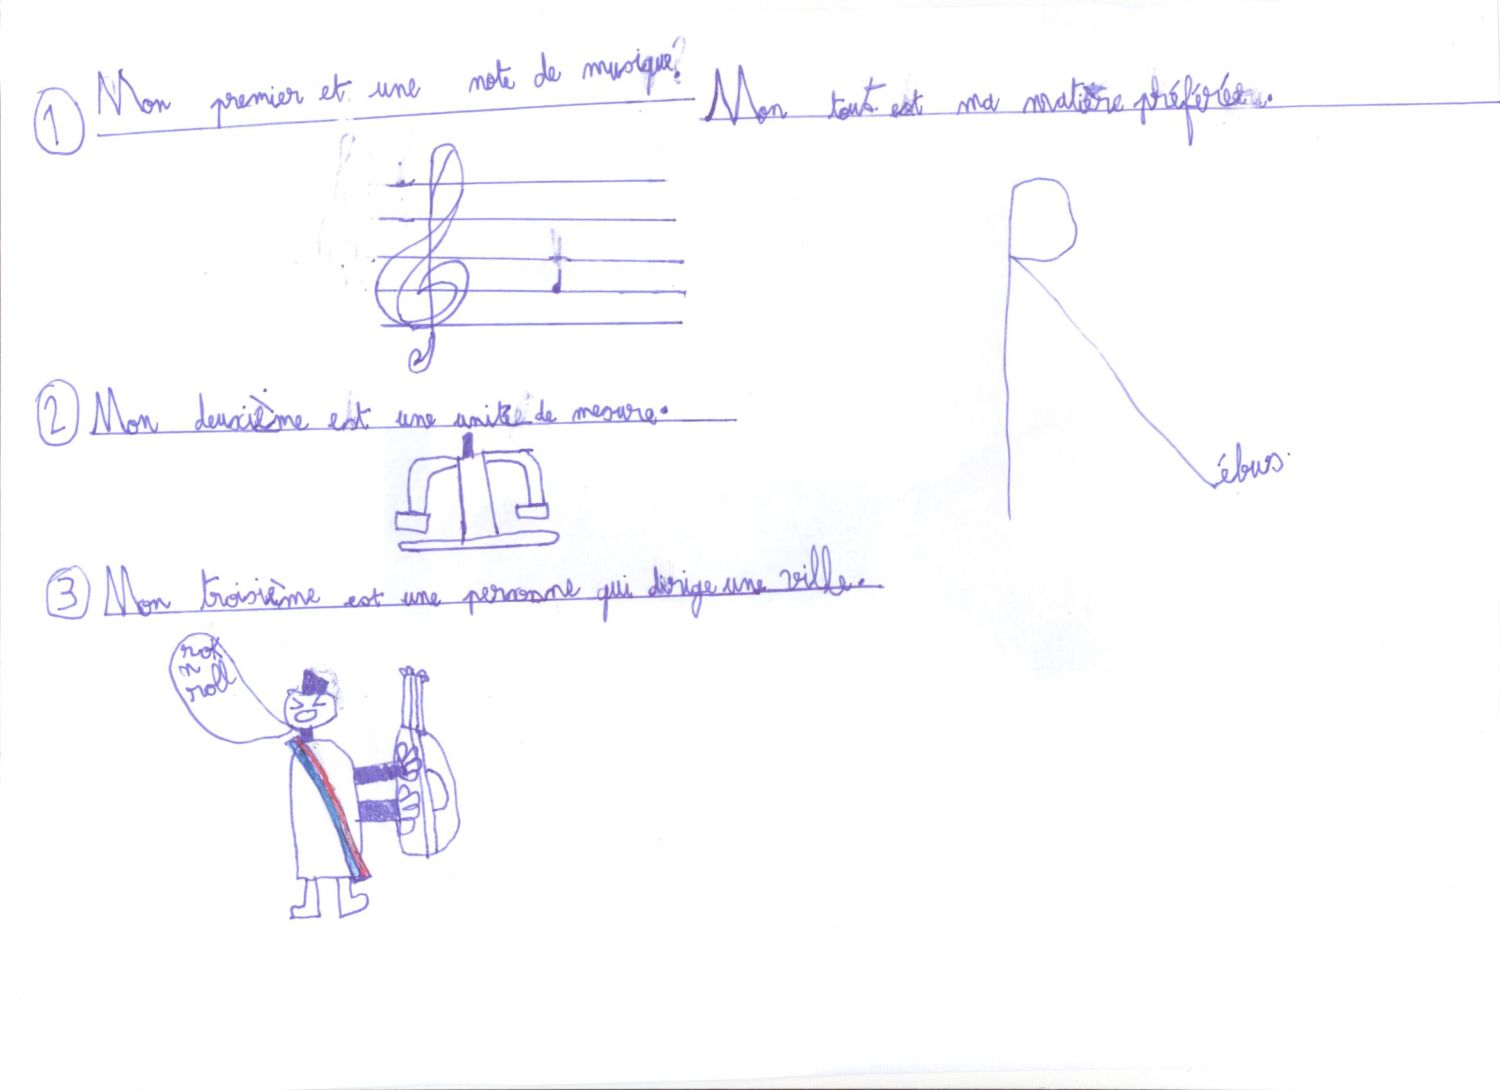 1 Mon premier et une note de musique?
Mon tout est ma matière préférée.
Rébus.
2 Mon deuxième est une unité de mesure.
3 Mon troisième est une personne qui dirige une ville.
rok
n
roll